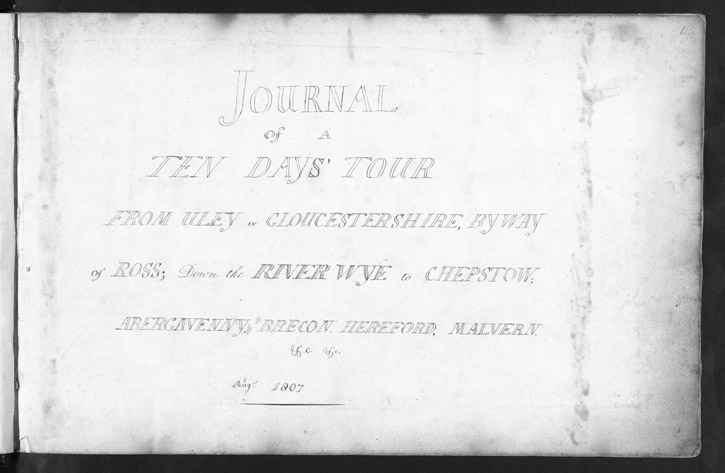 JOURNAL
Of A
TEN DAYS' TOUR
FROM ULEY in GLOUCESTERSHIRE, BY WAY
of ROSS; Down the RIVER WYE to CHEPSTOW;
ABERGAVENNY, BRECON, HEREFORD, MALVERN,
&c. &c.
Augt 1807